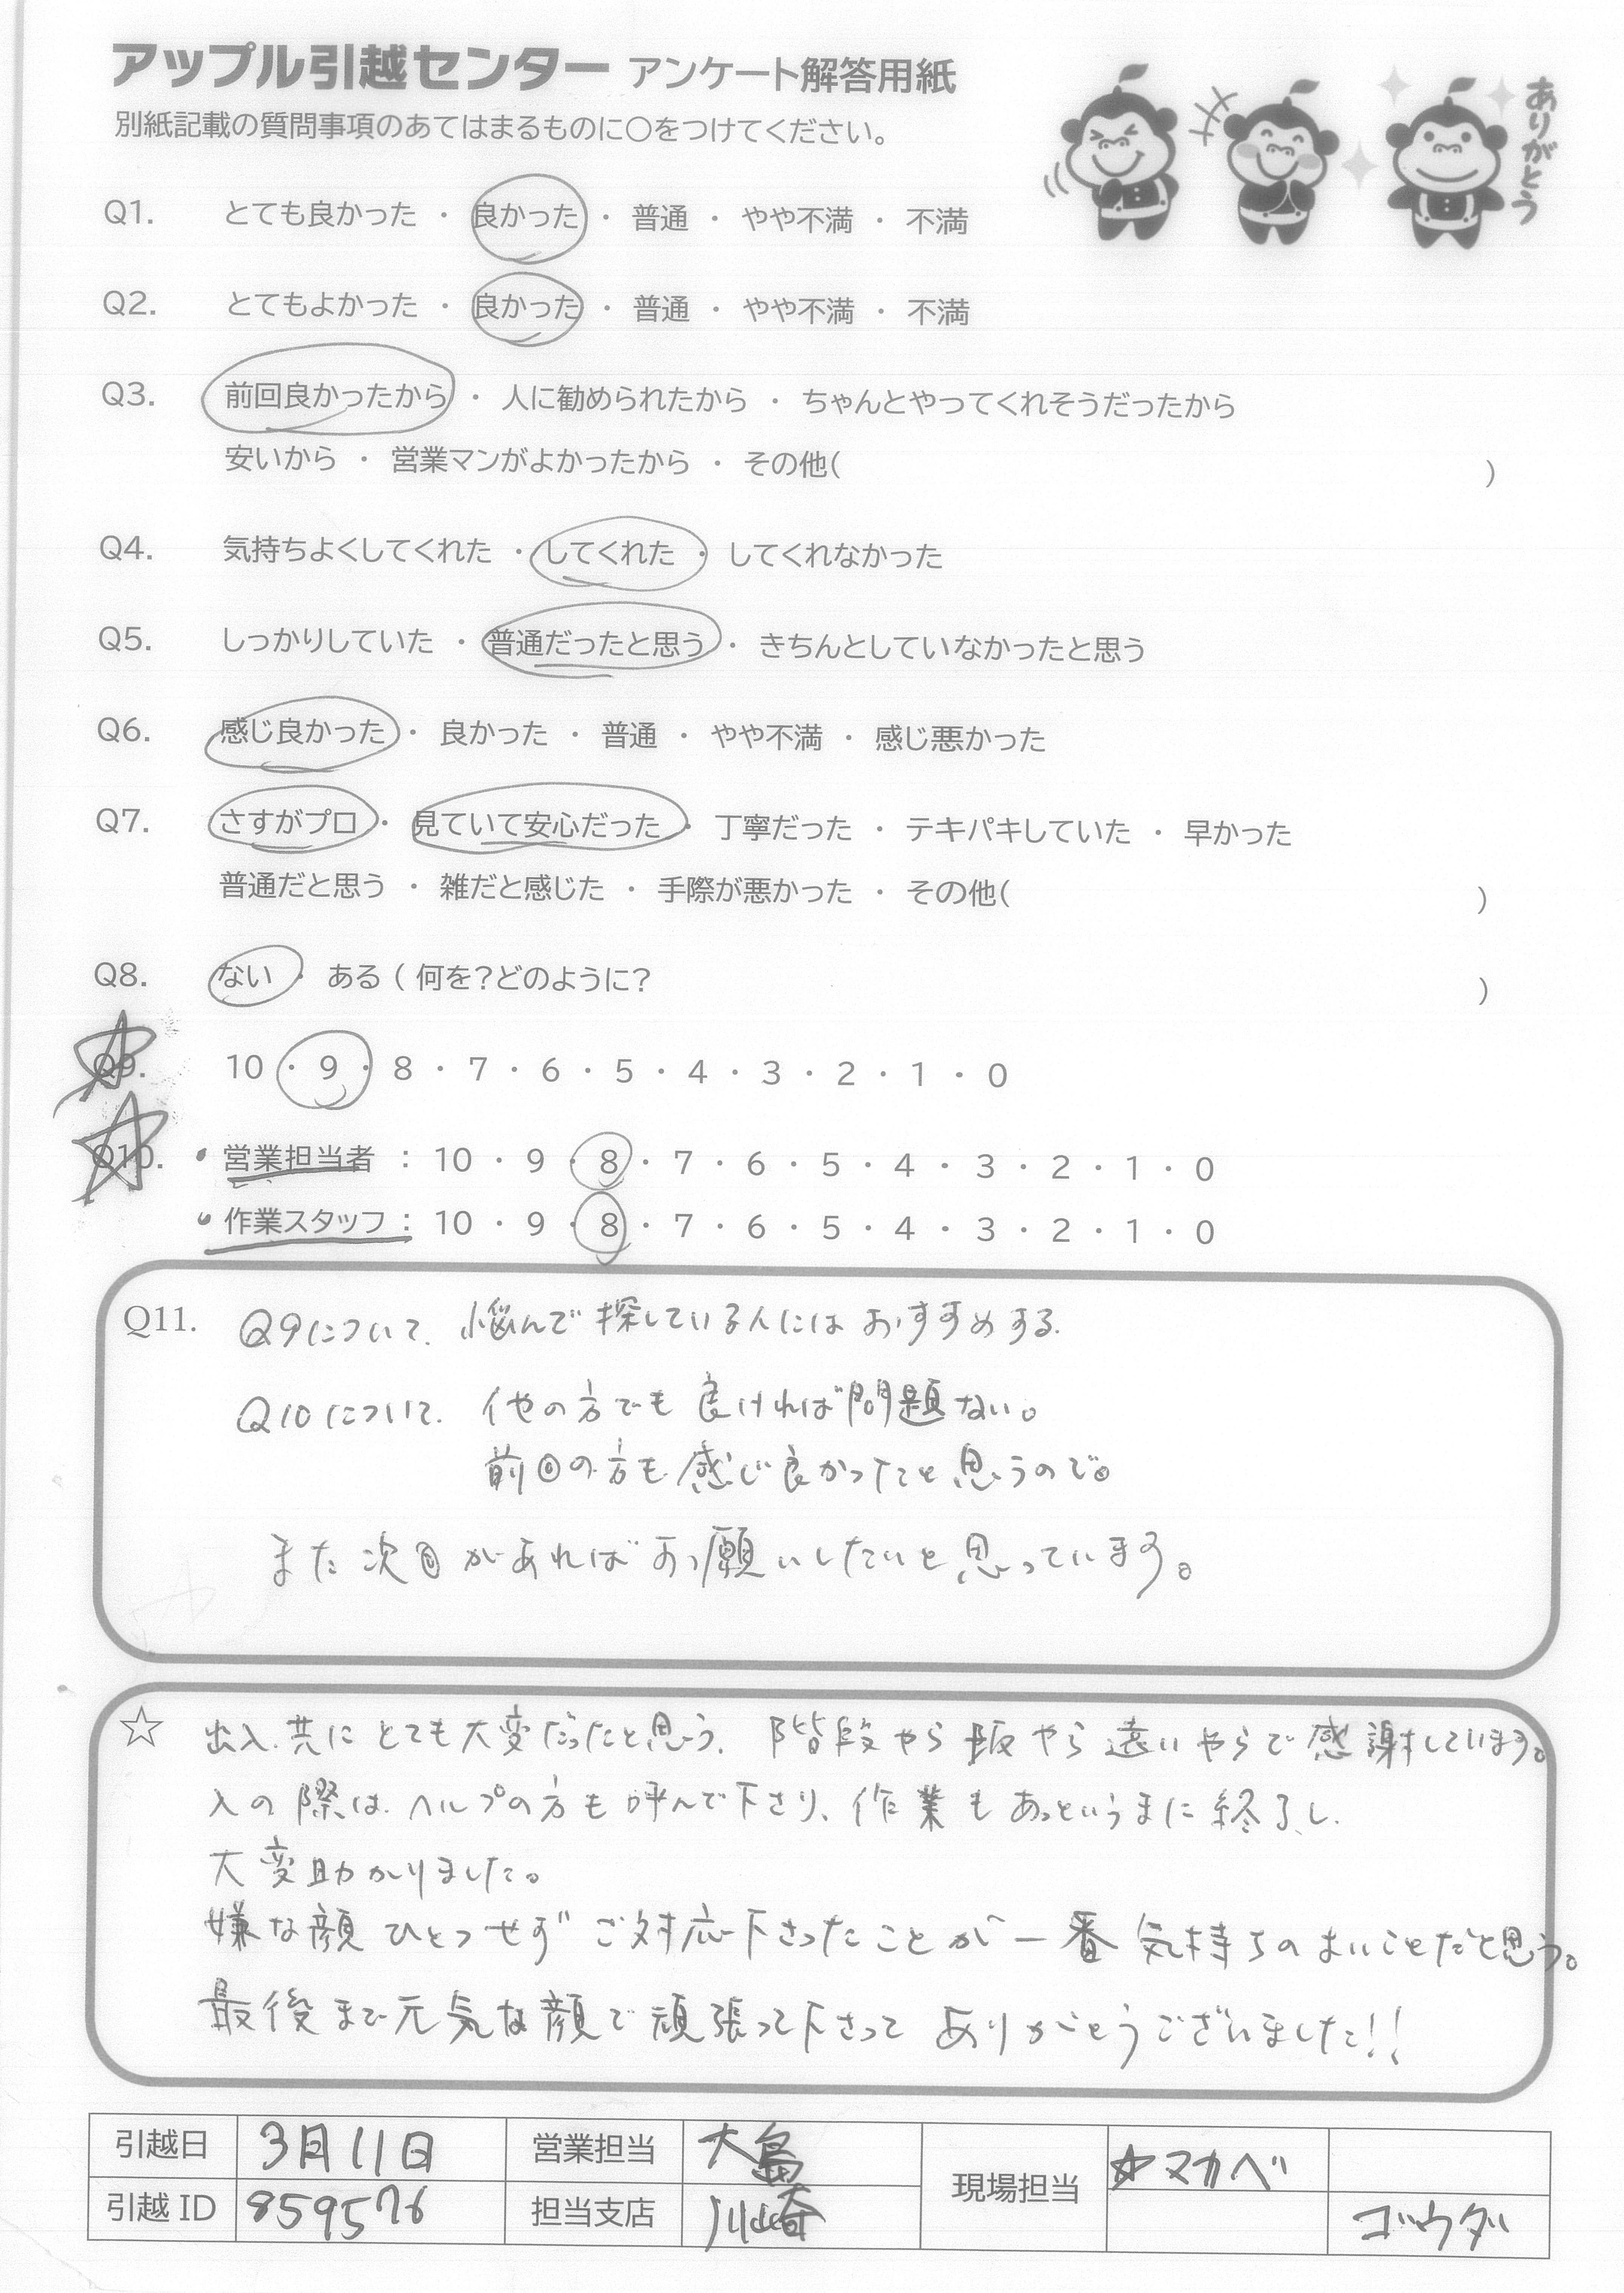 アップル引越センター アンケート解答用紙
別紙記載の質問事項のあてはまるものに○をつけてください。
ありがとう
Q1. とても良かった ・ 良かった ・ 普通 ・ やや不満 ・ 不満
Q2. とてもよかった ・ 良かった ・ 普通 ・ やや不満 ・ 不満
Q3. 前回良かったから ・ 人に勧められたから ・ ちゃんとやってくれそうだったから
安いから ・ 営業マンがよかったから ・ その他( )
Q4. 気持ちよくしてくれた ・ してくれた ・ してくれなかった
Q5. しっかりしていた ・ 普通だったと思う ・ きちんとしていなかったと思う
Q6. 感じ良かった ・ 良かった ・ 普通 ・ やや不満 ・ 感じ悪かった
Q7. さすがプロ ・ 見ていて安心だった ・ 丁寧だった ・ テキパキしていた ・ 早かった
普通だと思う ・ 雑だと感じた ・ 手際が悪かった ・ その他( )
Q8. ない ・ ある ( 何を?どのように? )
Q9. 10 ・ 9 ・ 8 ・ 7 ・ 6 ・ 5 ・ 4 ・ 3 ・ 2 ・ 1 ・ 0
Q10. ・営業担当者 : 10 ・ 9 ・ 8 ・ 7 ・ 6 ・ 5 ・ 4 ・ 3 ・ 2 ・ 1 ・ 0
・作業スタッフ : 10 ・ 9 ・ 8 ・ 7 ・ 6 ・ 5 ・ 4 ・ 3 ・ 2 ・ 1 ・ 0
Q11. Q9について. 悩んで探している人にはおすすめする.
Q10について. 他の方でも良ければ問題ない。
前回の方も感じ良かったと思うので。
また次回があればお願いしたいと思っています。
☆ 出入.共にとても大変だったと思う. 階段やら坂やら遠いやらで感謝しています。
入の際は.ヘルプの方も呼んで下さり、作業もあっというまに終了し.
大変助かりました。
嫌な顔ひとつせずご対応下さったことが一番気持ちのよいことだと思う。
最後まで元気な顔で頑張って下さってありがとうございました!!
引越日 3月11日 営業担当 大島 現場担当 ☆マカベ
引越ID 859576 担当支店 川崎 ゴウダ